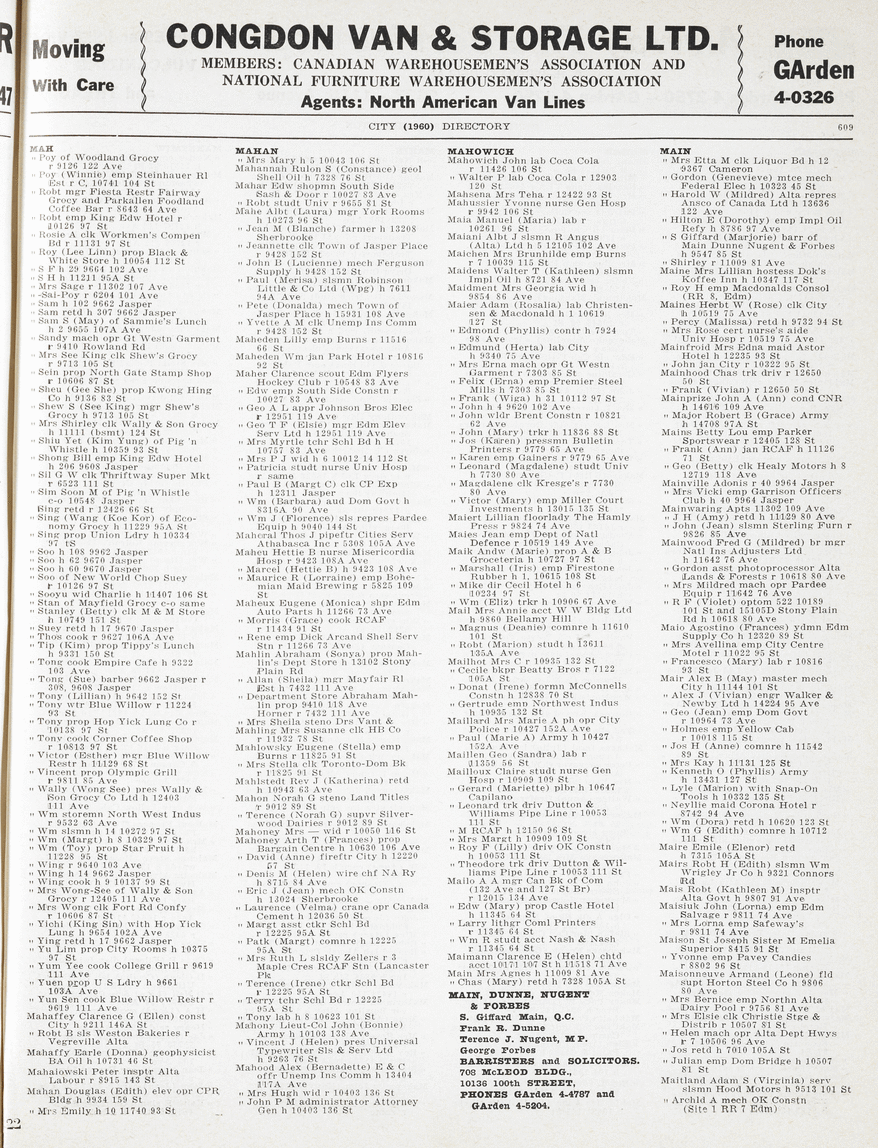 R
47
Moving
With Care
CONGDON VAN & STORAGE LTD.
MEMBERS: CANADIAN WAREHOUSEMEN'S ASSOCIATION AND
NATIONAL FURNITURE WAREHOUSEMEN'S ASSOCIATION
Agents: North American Van Lines
Phone
GArden
4-0326
CITY (1960) DIRECTORY
609
MAH
" Poy of Woodland Grocy
r 9126 122 Ave
" Poy (Winnie) emp Steinhauer Rl
Est r C, 10741 104 St
" Robt mgr Fiesta Restr Fairway
Grocy and Parkallen Foodland
Coffee Bar r 8643 64 Ave
" Robt emp King Edw Hotel r
10126 97 St
" Rosie A clk Workmen's Compen
Bd r 11131 97 St
" Roy (Lee Linn) prop Black &
White Store h 10054 112 St
" S F h 29 9664 102 Ave
" S H h 11211 95A St
" Mrs Sage r 11302 107 Ave
" -Sai-Poy r 6204 101 Ave
" Sam h 102 9662 Jasper
" Sam retd h 307 9662 Jasper
" Sam S (May) of Sammie's Lunch
h 2 9655 107A Ave
" Sandy mach opr Gt Westn Garment
r 9410 Rowland Rd
" Mrs See King clk Shew's Grocy
r 9713 105 St
" Sein prop North Gate Stamp Shop
r 10606 87 St
" Sheu (Gee She) prop Kwong Hing
Co h 9136 83 St
" Shew S (See King) mgr Shew's
Grocy h 9713 105 St
" Mrs Shirley clk Wally & Son Grocy
h 11111 (bsmt) 124 St
" Shiu Yet (Kim Yung) of Pig 'n
Whistle h 10359 93 St
" Shong Bill emp King Edw Hotel
h 206 9608 Jasper
" Sil G W clk Thriftway Super Mkt
r 6523 111 St
" Sim Soon M of Pig 'n Whistle
c-o 10548 Jasper
" Sing retd r 12426 66 St
" Sing (Wang (Koe Kor) of Eco-
nomy Grocy h 11229 95A St
" Sing prop Union Ldry h 10334
97 tS
" Soo h 108 9962 Jasper
" Soo h 62 9670 Jasper
" Soo h 60 9670 Jasper
" Soo of New World Chop Suey
r 10126 97 St
" Sooyu wid Charlie h 11407 106 St
" Stan of Mayfield Grocy c-o same
" Stanley (Betty) clk M & M Store
h 10749 151 St
" Suey retd h 17 9670 Jasper
" Thos cook r 9627 106A Ave
" Tip (Kim) prop Tippy's Lunch
h 9331 150 St
" Tong cook Empire Cafe h 9322
103 Ave
" Tong (Sue) barber 9662 Jasper r
308, 9608 Jasper
" Tony (Lillian) h 9642 152 St
" Tony wtr Blue Willow r 11224
93 St
" Tony prop Hop Yick Lung Co r
10138 97 St
" Tony cook Corner Coffee Shop
r 10813 97 St
" Victor (Esther) mgr Blue Willow
Restr h 11129 68 St
" Vincent prop Olympic Grill
r 9811 85 Ave
" Wally (Wong See) pres Wally &
Son Grocy Co Ltd h 12403
111 Ave
" Wm storemn North West Indus
r 9532 63 Ave
" Wm slsmn h 14 10272 97 St
" Wm (Margt) h 8 10329 97 St
" Wm (Toy) prop Star Fruit h
11228 95 St
" Wing r 9640 103 Ave
" Wing h 14 9662 Jasper
" Wing cook h 9 10137 99 St
" Mrs Wong-See of Wally & Son
Grocy r 12405 111 Ave
" Mrs Wong clk Fort Rd Confy
r 10606 87 St
" Yichi (King Sin) with Hop Yick
Lung h 9654 102A Ave
" Ying retd h 17 9662 Jasper
" Yu Lim prop City Rooms h 10375
97 St
" Yum Yee cook College Grill r 9619
111 Ave
" Yuen prop U S Ldry h 9661
103A Ave
" Yun Sen cook Blue Willow Restr r
9619 111 Ave
Mahaffey Clarence G (Ellen) const
City h 9211 146A St
" Robt B sls Weston Bakeries r
Vegreville Alta
Mahaffy Earle (Donna) geophysicist
BA Oil h 10731 46 St
Mahaiowski Peter insptr Alta
Labour r 8915 143 St
Mahan Douglas (Edith) elev opr CPR
Bldg h 9934 159 St
" Mrs Emily h 10 11740 93 St
22
MAHAN
" Mrs Mary h 5 10043 106 St
Mahannah Rulon S (Constance) geol
Shell Oil h 7328 76 St
Mahar Edw shopmn South Side
Sash & Door r 10027 83 Ave
" Robt studt Univ r 9655 81 St
Mahe Albt (Laura) mgr York Rooms
h 10273 96 St
" Jean M (Blanche) farmer h 13208
Sherbrooke
" Jeannette clk Town of Jasper Place
r 9428 152 St
" John B (Lucienne) mech Ferguson
Supply h 9428 152 St
" Paul (Merisa) slsmn Robinson
Little & Co Ltd (Wpg) h 7611
94A Ave
" Pete (Donalda) mech Town of
Jasper Place h 15931 108 Ave
" Yvette A M clk Unemp Ins Comm
r 9428 152 St
Maheden Lilly emp Burns r 11516
66 St
Maheden Wm jan Park Hotel r 10816
92 St
Maher Clarence scout Edm Flyers
Hockey Club r 10548 83 Ave
" Edw emp South Side Constn r
10027 83 Ave
" Geo A L appr Johnson Bros Elec
r 12951 119 Ave
" Geo T F (Elsie) mgr Edm Elev
Serv Ltd h 12951 119 Ave
" Mrs Myrtle tchr Schl Bd h H
10757 83 Ave
" Mrs P J wid h 6 10012 14 112 St
" Patricia studt nurse Univ Hosp
r same
" Paul B (Margt C) clk CP Exp
h 12311 Jasper
" Wm (Barbara) aud Dom Govt h
8316A 90 Ave
" Wm J (Florence) sls repres Pardee
Equip h 9040 144 St
Maheral Thos J pipeftr Cities Serv
Athabasca Inc r 5308 105A Ave
Maheu Hettie B nurse Misericordia
Hosp r 9423 108A Ave
" Marcel (Hettie B) h 9423 108 Ave
" Maurice R (Lorraine) emp Bohe-
mian Maid Brewing r 5825 109
St
Maheux Eugene (Monica) shpr Edm
Auto Parts h 11266 73 Ave
" Morris (Grace) cook RCAF
r 11434 91 St
" Rene emp Dick Arcand Shell Serv
Stn r 11266 73 Ave
Mahlin Abraham (Sonya) prop Mah-
lin's Dept Store h 13102 Stony
Plain Rd
" Allan (Sheila) mgr Mayfair Rl
Est h 7432 111 Ave
" Department Store Abraham Mah-
lin prop 9410 118 Ave
Horner r 7432 111 Ave
" Mrs Sheila steno Drs Vant &
Mahling Mrs Susanne clk HB Co
r 11932 78 St
Mahlowsky Eugene (Stella) emp
Burns r 11825 91 St
" Mrs Stella clk Toronto-Dom Bk
r 11825 91 St
Mahlstedt Rev J (Katherina) retd
h 10943 63 Ave
Mahon Norah G steno Land Titles
r 9012 89 St
" Terence (Norah G) supvr Silver-
wood Dairies r 9012 89 St
Mahoney Mrs — wid r 10050 116 St
Mahoney Arth T (Frances) prop
Bargain Centre h 10630 106 Ave
" David (Anne) fireftr City h 12220
57 St
" Denis M (Helen) wire chf NA Ry
h 8715 84 Ave
" Eric J (Jean) mech OK Constn
h 13024 Sherbrooke
" Laurence (Velma) crane opr Canada
Cement h 12036 50 St
" Margt asst ctkr Schl Bd
r 12225 95A St
" Patk (Margt) comnre h 12225
95A St
" Mrs Ruth L slsldy Zellers r 3
Maple Cres RCAF Stn (Lancaster
Pk
" Terence (Irene) ctkr Schl Bd
r 12225 95A St
" Terry tchr Schl Bd r 12225
95A St
" Tony lab h 8 10623 101 St
Mahony Lieut-Col John (Bonnie)
Army h 10103 138 Ave
" Vincent J (Helen) pres Universal
Typewriter Sls & Serv Ltd
h 9263 76 St
Mahood Alex (Bernadette) E & C
offr Unemp Ins Comm h 13404
117A Ave
" Mrs Hugh wid r 10403 136 St
" John P M administrator Attorney
Gen h 10403 136 St
MAHOWICH
Mahowich John lab Coca Cola
r 11426 106 St
" Walter P lab Coca Cola r 12903
120 St
Mahsena Mrs Teha r 12422 93 St
Mahussier Yvonne nurse Gen Hosp
r 9942 106 St
Maia Manuel (Maria) lab r
10261 96 St
Maiani Albt J slsmn R Angus
(Alta) Ltd h 5 12105 102 Ave
Maichen Mrs Brunhilde emp Burns
r 7 10039 115 St
Maidens Walter T (Kathleen) slsmn
Impl Oil h 8721 84 Ave
Maidment Mrs Georgia wid h
9854 86 Ave
Maier Adam (Rosalia) lab Christen-
sen & Macdonald h 1 10619
127 St
" Edmond (Phyllis) contr h 7924
98 Ave
" Edmund (Herta) lab City
h 9340 75 Ave
" Mrs Erna mach opr Gt Westn
Garment r 7303 85 St
" Felix (Erna) emp Premier Steel
Mills h 7303 85 St
" Frank (Wiga) h 31 10112 97 St
" John h 4 9620 102 Ave
" John wldr Brent Constn r 10821
62 Ave
" John (Mary) trkr h 11836 88 St
" Jos (Karen) pressmn Bulletin
Printers r 9779 65 Ave
" Karen emp Gainers r 9779 65 Ave
" Leonard (Magdalene) studt Univ
h 7730 80 Ave
" Magdalene clk Kresge's r 7730
80 Ave
" Victor (Mary) emp Miller Court
Investments h 13015 135 St
Maiert Lillian floorlady The Hamly
Press r 9824 74 Ave
Maies Jean emp Dept of Natl
Defence r 10519 149 Ave
Maik Andw (Marie) prop A & B
Groceteria h 10727 97 St
" Marshall (Iris) emp Firestone
Rubber h 1, 10615 108 St
" Mike dir Cecil Hotel h 6
10234 97 St
" Wm (Eliz) trkr h 10906 67 Ave
Mail Mrs Annie acct W W Bldg Ltd
h 9860 Bellamy Hill
" Magnus (Deanie) comnre h 11610
101 St
" Robt (Marion) studt h 13611
135A Ave
Mailhot Mrs C r 10935 132 St
" Cecile bkpr Beatty Bros r 7122
105A St
" Donat (Irene) formn McConnells
Constn h 12838 70 St
" Gertrude emp Northwest Indus
h 10935 132 St
Maillard Mrs Marie A ph opr City
Police r 10427 152A Ave
" Paul (Marie A) Army h 10427
152A Ave
Maillen Geo (Sandra) lab r
11359 56 St
Mailloux Claire studt nurse Gen
Hosp r 10909 109 St
" Gerard (Mariette) plbr h 10647
Capilano
" Leonard trk driv Dutton &
Williams Pipe Line r 10053
111 St
" M RCAF h 12150 96 St
" Mrs Margt h 10909 109 St
" Roy F (Lilly) driv OK Constn
h 10053 111 St
" Theodore trk driv Dutton & Wil-
liams Pipe Line r 10053 111 St
Mailo A A mgr Can Bk of Com
(132 Ave and 127 St Br)
r 12015 134 Ave
" Edw (Mary) prop Castle Hotel
h 11345 64 St
" Larry lithgr Coml Printers
r 11345 64 St
" Wm R studt acct Nash & Nash
r 11345 64 St
Maimann Clarence E (Helen) chtd
acct 10171 107 St h 11518 71 Ave
Main Mrs Agnes h 11009 81 Ave
" Chas (Mary) retd h 7328 105A St
MAIN, DUNNE, NUGENT
& FORBES
S. Giffard Main, Q.C.
Frank R. Dunne
Terence J. Nugent, M P.
George Forbes
BARRISTERS and SOLICITORS.
708 McLEOD BLDG.,
10136 100th STREET,
PHONES GArden 4-4787 and
GArden 4-5204.
MAIN
" Mrs Etta M clk Liquor Bd h 12
9367 Cameron
" Gordon (Genevieve) mtce mech
Federal Elec h 10323 45 St
" Harold W (Mildred) Alta repres
Ansco of Canada Ltd h 13636
122 Ave
" Hilton E (Dorothy) emp Impl Oil
Refy h 8786 97 Ave
" S Giffard (Marjorie) barr of
Main Dunne Nugent & Forbes
h 9547 85 St
" Shirley r 11009 81 Ave
Maine Mrs Lillian hostess Dok's
Koffee Inn h 10347 117 St
" Roy H emp Macdonalds Consol
(RR 8, Edm)
Maines Herbt W (Rose) clk City
h 10519 75 Ave
" Percy (Malissa) retd h 9732 94 St
" Mrs Rose cert nurse's aide
Univ Hosp r 10519 75 Ave
Mainfroid Mrs Edna maid Astor
Hotel h 12235 93 St
" John jan City r 10322 95 St
Mainhood Chas trk driv r 12650
50 St
" Frank (Vivian) r 12650 50 St
Mainprize John A (Ann) cond CNR
h 14616 109 Ave
" Major Robert B (Grace) Army
h 14708 97A St
Mains Betty Lou emp Parker
Sportswear r 12405 128 St
" Frank (Ann) jan RCAF h 11126
71 St
" Geo (Betty) clk Healy Motors h 8
12719 118 Ave
Mainville Adonis r 40 9964 Jasper
" Mrs Vicki emp Garrison Officers
Club h 40 9964 Jasper
Mainwaring Apts 11302 109 Ave
" J H (Amy) retd h 11129 80 Ave
" John (Jean) slsmn Sterling Furn r
9826 85 Ave
Mainwood Fred G (Mildred) br mgr
Natl Ins Adjusters Ltd
h 11642 76 Ave
" Gordon asst photoprocessor Alta
Lands & Forests r 10618 80 Ave
" Mrs Mildred mach opr Pardee
Equip r 11642 76 Ave
" R F (Violet) optom 522 10189
101 St and 15105D Stony Plain
Rd h 10618 80 Ave
Maio Agostino (Frances) ydmn Edm
Supply Co h 12320 89 St
" Mrs Avellina emp City Centre
Motel r 11022 95 St
" Francesco (Mary) lab r 10816
93 St
Mair Alex B (May) master mech
City h 11144 101 St
" Alex J (Vivian) engr Walker &
Newby Ltd h 14224 95 Ave
" Geo (Jean) emp Dom Govt
r 10964 73 Ave
" Holmes emp Yellow Cab
r 10018 115 St
" Jos H (Anne) comnre h 11542
89 St
" Mrs Kay h 11131 125 St
" Kenneth O (Phyllis) Army
h 13431 127 St
" Lyle (Marion) with Snap-On
Tools h 10332 135 St
" Neyllie maid Corona Hotel r
8742 94 Ave
" Wm (Dora) retd h 10620 123 St
" Wm G (Edith) comnre h 10712
111 St
Maire Emile (Elenor) retd
h 7315 105A St
Mairs Robt H (Edith) slsmn Wm
Wrigley Jr Co h 9321 Connors
Rd
Mais Robt (Kathleen M) insptr
Alta Govt h 9807 91 Ave
Maisiuk John (Lorna) emp Edm
Salvage r 9811 74 Ave
" Mrs Lorna emp Safeway's
r 9811 74 Ave
Maison St Joseph Sister M Emelia
Superior 8415 91 St
" Yvonne emp Pavey Candies
r 8802 96 St
Maisonneuve Armand (Leone) fld
supt Horton Steel Co h 9806
80 Ave
" Mrs Bernice emp Northn Alta
Dairy Pool r 9756 81 Ave
" Mrs Elsie clk Christie Stge &
Distrib r 10507 81 St
" Helen mach opr Alta Dept Hwys
r 7 10506 96 Ave
" Jos retd h 7010 105A St
" Julian emp Dom Bridge h 10507
81 St
Maitland Adam S (Virginia) serv
slsmn Hood Motors h 9513 101 St
" Archd A mech OK Constn
(Site 1 RR 7 Edm)